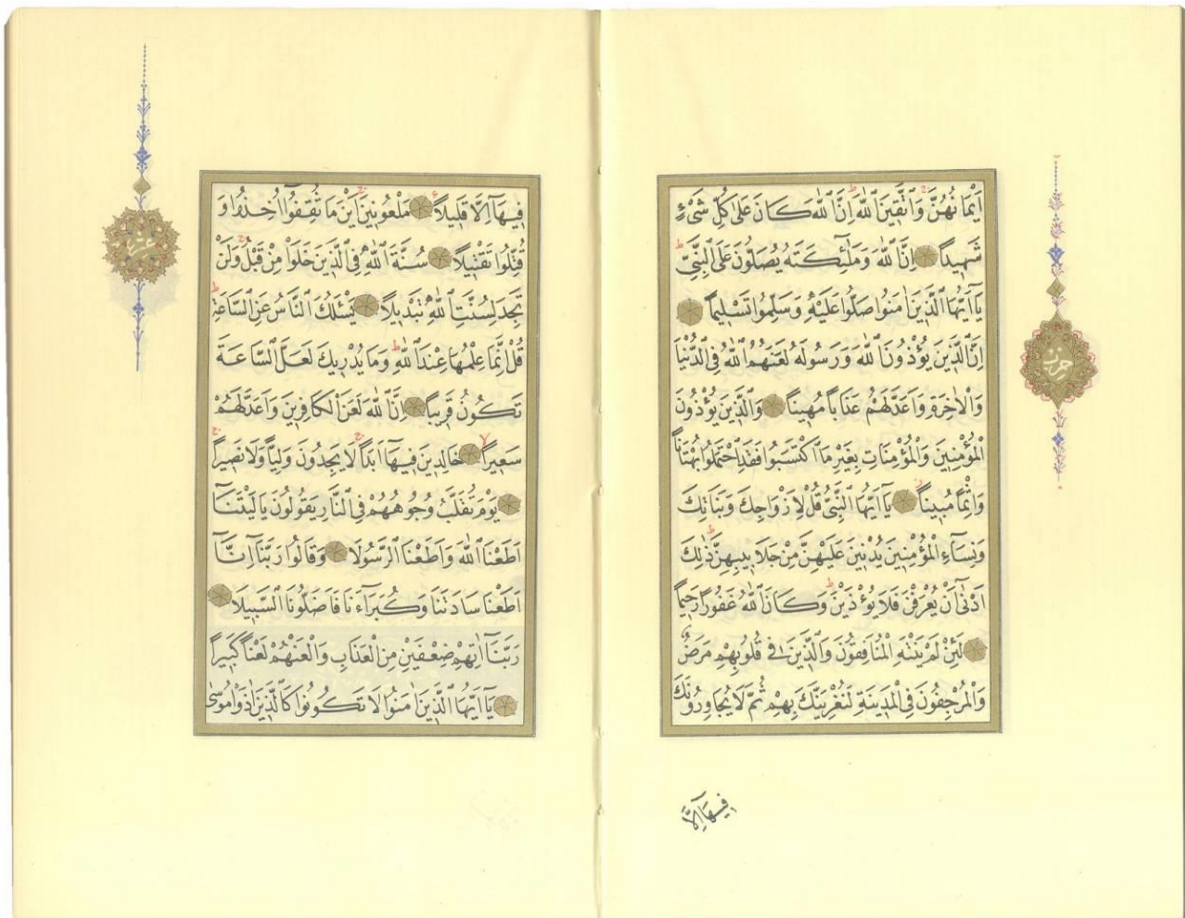 اَيْمَانُهُنَّ وَاتَّقٖينَ اللّٰهَ اِنَّ اللّٰهَ كَانَ عَلٰى كُلِّ شَىْءٍ
شَهٖيدًا اِنَّ اللّٰهَ وَمَلٰٓئِكَتَهُ يُصَلُّونَ عَلَى النَّبِىِّ
يَٓا اَيُّهَا الَّذٖينَ اٰمَنُوا صَلُّوا عَلَيْهِ وَسَلِّمُوا تَسْلٖيمًا
اِنَّ الَّذٖينَ يُؤْذُونَ اللّٰهَ وَرَسُولَهُ لَعَنَهُمُ اللّٰهُ فِى الدُّنْيَا
وَالْاٰخِرَةِ وَاَعَدَّ لَهُمْ عَذَابًا مُهٖينًا وَالَّذٖينَ يُؤْذُونَ
الْمُؤْمِنٖينَ وَالْمُؤْمِنَاتِ بِغَيْرِ مَا اكْتَسَبُوا فَقَدِ احْتَمَلُوا بُهْتَانًا
وَاِثْمًا مُبٖينًا يَٓا اَيُّهَا النَّبِىُّ قُلْ لِاَزْوَاجِكَ وَبَنَاتِكَ
وَنِسَٓاءِ الْمُؤْمِنٖينَ يُدْنٖينَ عَلَيْهِنَّ مِنْ جَلَابٖيبِهِنَّ ذٰلِكَ
اَدْنٰٓى اَنْ يُعْرَفْنَ فَلَا يُؤْذَيْنَ وَكَانَ اللّٰهُ غَفُورًا رَحٖيمًا
لَئِنْ لَمْ يَنْتَهِ الْمُنَافِقُونَ وَالَّذٖينَ فٖى قُلُوبِهِمْ مَرَضٌ
وَالْمُرْجِفُونَ فِى الْمَدٖينَةِ لَنُغْرِيَنَّكَ بِهِمْ ثُمَّ لَا يُجَاوِرُونَكَ
فٖيهَٓا اِلَّا
حزب
فٖيهَٓا اِلَّا قَلٖيلًا مَلْعُونٖينَ اَيْنَ مَا ثُقِفُٓوا اُخِذُوا وَ
قُتِّلُوا تَقْتٖيلًا سُنَّةَ اللّٰهِ فِى الَّذٖينَ خَلَوْا مِنْ قَبْلُ وَلَنْ
تَجِدَ لِسُنَّتِ اللّٰهِ تَبْدٖيلًا يَسْئَلُكَ النَّاسُ عَنِ السَّاعَةِ
قُلْ اِنَّمَا عِلْمُهَا عِنْدَ اللّٰهِ وَمَا يُدْرٖيكَ لَعَلَّ السَّاعَةَ
تَكُونُ قَرٖيبًا اِنَّ اللّٰهَ لَعَنَ الْكَافِرٖينَ وَاَعَدَّ لَهُمْ
سَعٖيرًا خَالِدٖينَ فٖيهَٓا اَبَدًا لَا يَجِدُونَ وَلِيًّا وَلَا نَصٖيرًا
يَوْمَ تُقَلَّبُ وُجُوهُهُمْ فِى النَّارِ يَقُولُونَ يَا لَيْتَنَٓا
اَطَعْنَا اللّٰهَ وَاَطَعْنَا الرَّسُولَا وَقَالُوا رَبَّنَٓا اِنَّٓا
اَطَعْنَا سَادَتَنَا وَكُبَرَٓاءَنَا فَاَضَلُّونَا السَّبٖيلَا
رَبَّنَٓا اٰتِهِمْ ضِعْفَيْنِ مِنَ الْعَذَابِ وَالْعَنْهُمْ لَعْنًا كَبٖيرًا
يَٓا اَيُّهَا الَّذٖينَ اٰمَنُوا لَا تَكُونُوا كَالَّذٖينَ اٰذَوْا مُوسٰى